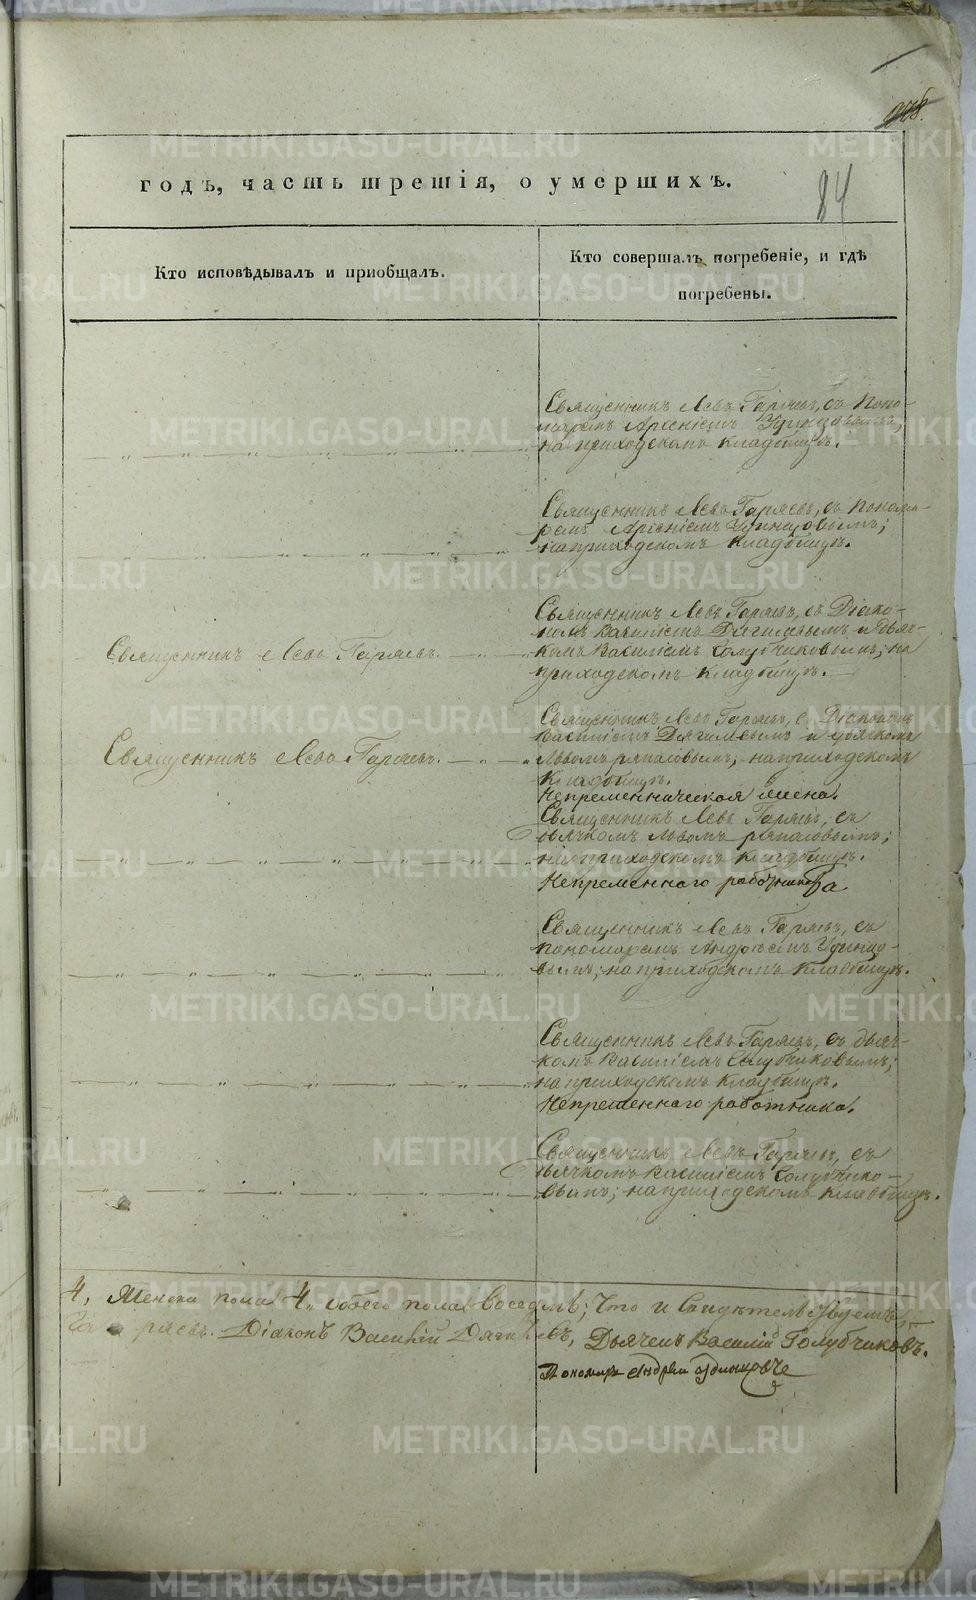 годъ, часть третія, о умершихъ.
84
Кто исповѣдывалъ и пріобщалъ.
Кто совершалъ погребеніе, и гдѣ
погребены.
Священникъ Левъ Гаряевъ, съ Поно-
маремъ Арсеніемъ
на приходскомъ кладбищѣ.
Священникъ Левъ Гаряевъ, съ понома-
ремъ Арсеніемъ Удинцовымъ;
на приходскомъ кладбищѣ.
Священникъ Левъ Гаряевъ.
Священникъ Левъ Гаряевъ, съ Діако-
номъ Василіемъ Дягилевымъ и Дьяч-
комъ Василіемъ Голубчиковымъ; на
приходскомъ кладбищѣ.
Священникъ Левъ Гаряевъ.
Священникъ Левъ Гаряевъ, с Діакономъ
Василіемъ Дягилевымъ и дьячкомъ
Львомъ на приходскомъ
Кладбищѣ.
Непременническая жена.
Священникъ Левъ Гаряевъ, съ
дьячкомъ Львомъ
на приходскомъ кладбищѣ.
Непременнаго работника
Священникъ Левъ Гаряевъ, съ
пономаремъ Андреемъ Удинцо-
вымъ; на приходскомъ кладбищѣ.
Священникъ Левъ Гаряевъ, съ дьяч-
комъ Василіемъ Голубчиковымъ;
на приходскомъ кладбищѣ.
Непременнаго работника.
Священникъ Левъ Гаряевъ, съ
дьячкомъ Василіемъ Голубчико-
вымъ; на приходскомъ кладбищѣ.
4, Женска пола 4, обоего пола восемь; Что и
Гаряевъ. Діаконъ Василій Дягилевъ, Дьячекъ Василій Голубчиковъ.
Пономарь Андрей
METRIKI.GASO-URAL.RU